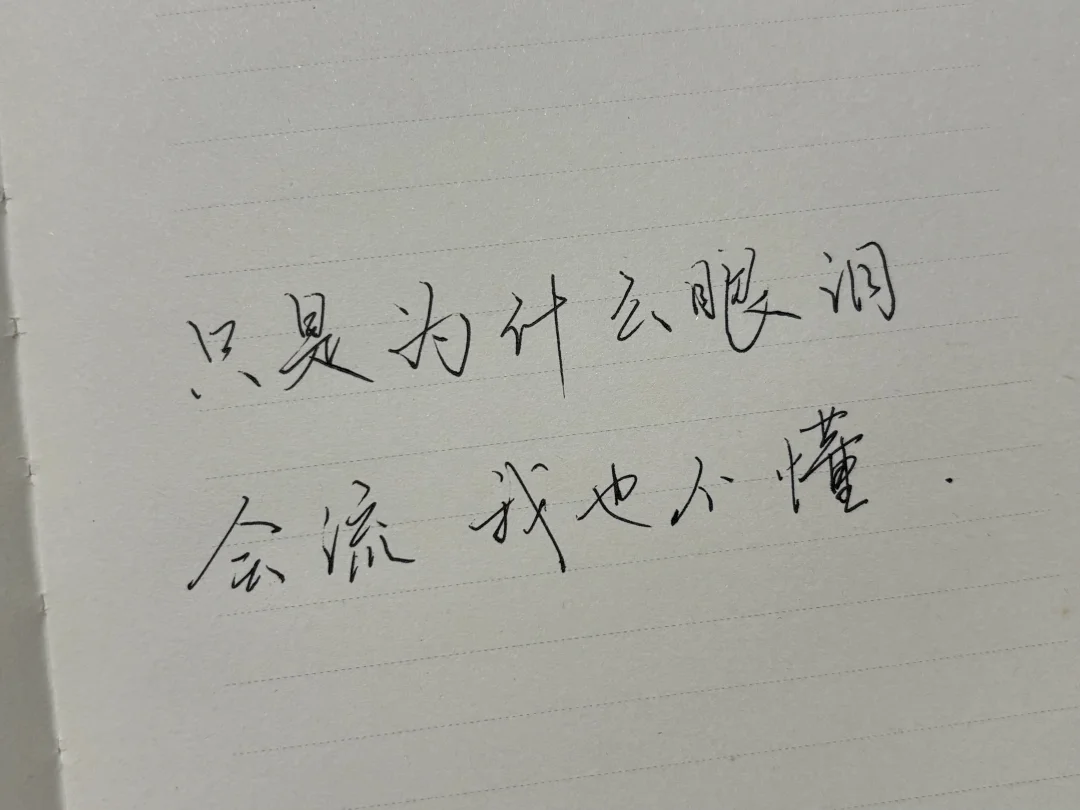 只是为什么眼泪
会流 我也不懂.